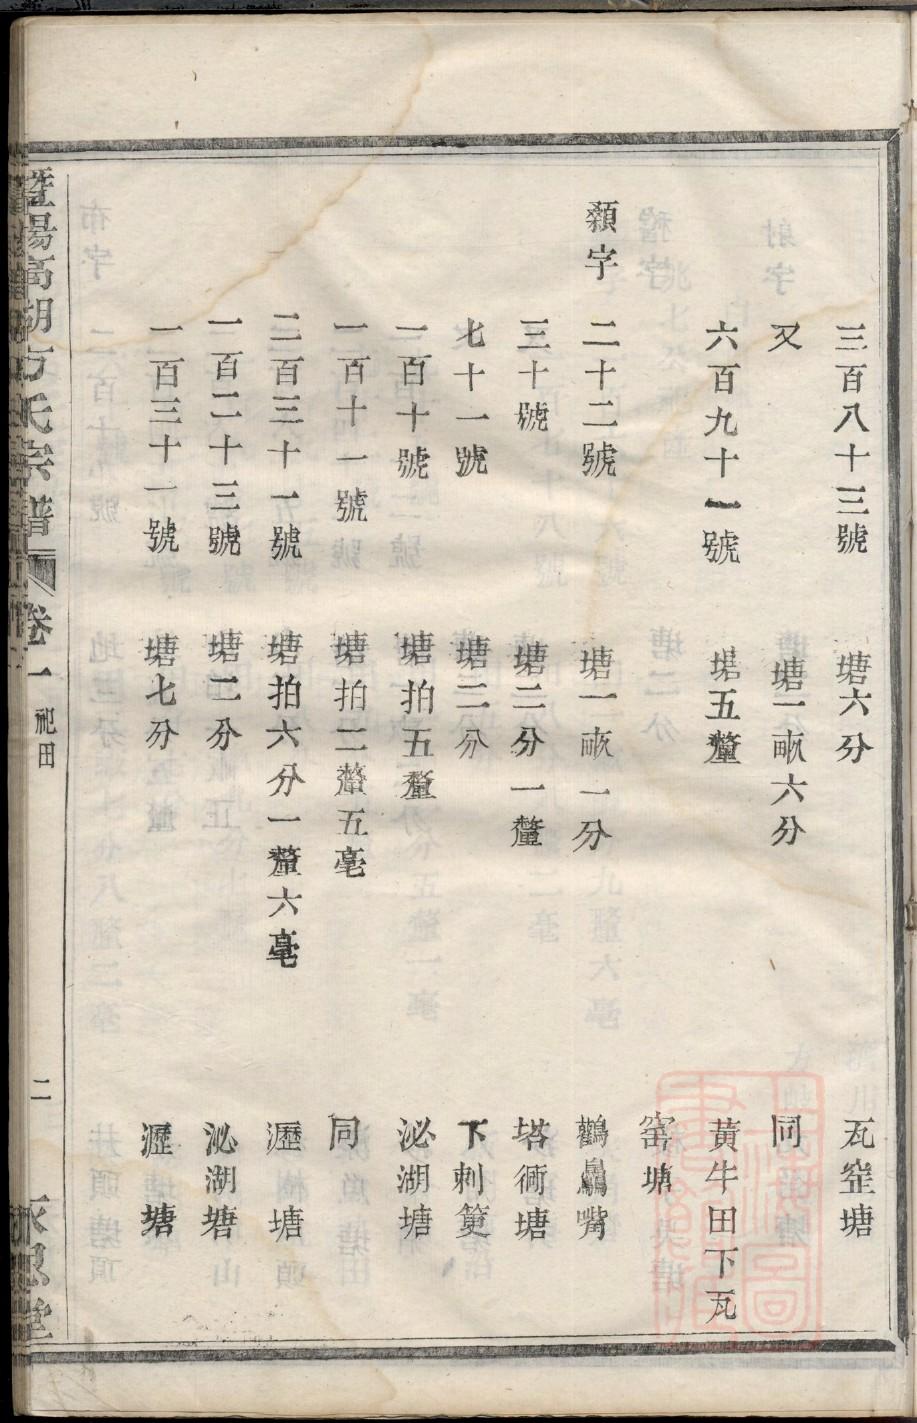 三百八十三號 塘六分 瓦窑塘
又 塘一畝六分 同
六百九十一號 塘五釐 黃牛田下瓦
窑塘
纇字 二十二號 塘一畝一分 鸛鳥嘴
三十號 塘二分一釐 塔衕塘
七十一號 塘二分 下刺筻
一百十號 塘拍五釐 泌湖塘
一百十一號 塘拍二釐五毫 同
二百三十一號 塘拍六分一釐六毫 瀝塘
一百二十三號 塘二分 泌湖塘
一百三十一號 塘七分 瀝塘
暨陽高湖方氏宗譜 卷一 祀田 二 永思堂